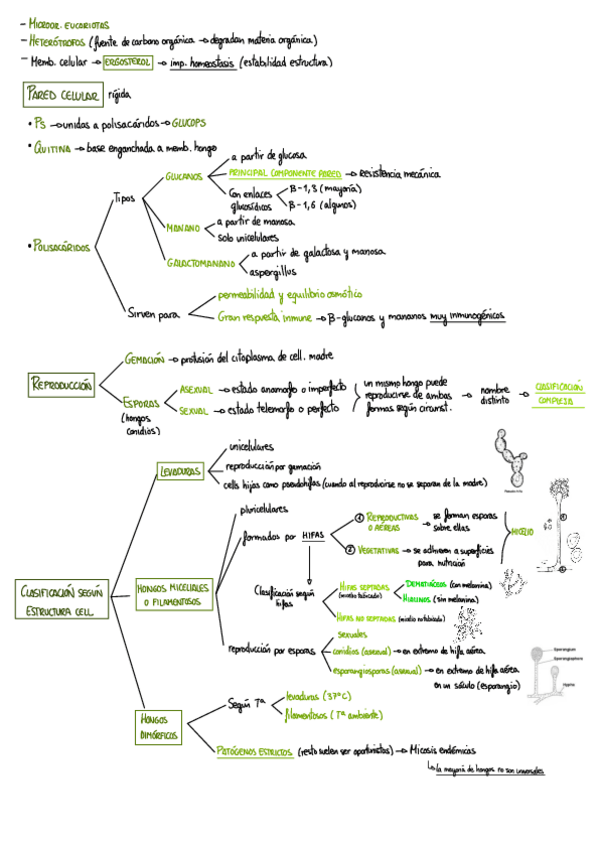 - MICROOR. EUCARIOTAS
- HETERÓTROFOS (fuente de carbono orgánica → degradan materia orgánica)
- Memb. celular → ERGOSTEROL → imp. homeostasis (estabilidad estructura)
PARED CELULAR rígida
• Ps → unidas a polisacáridos → GLUCOPS
• QUITINA → base enganchada a memb. hongo
• POLISACÁRIDOS
Tipos
GLUCANOS
a partir de glucosa
PRINCIPAL COMPONENTE PARED → Resistencia mecánica
Con enlaces glucosídicos
β-1,3 (mayoría)
β-1,6 (algunos)
MANANO
a partir de manosa
solo unicelulares
GALACTOMANANO
a partir de galactosa y manosa
aspergillus
Sirven para
permeabilidad y equilibrio osmótico
Gran respuesta inmune → β-glucanos y mananos muy inmunogénicos
REPRODUCCIÓN
GEMACIÓN → protusión del citoplasma de cell. madre
ESPORAS
(hongos
conidios)
ASEXUAL → estado anamorfo o imperfecto
SEXUAL → estado telemorfo o perfecto
un mismo hongo puede
reproducirse de ambas
formas según circunst.
→ nombre
distinto
→ CLASIFICACIÓN
COMPLEJA
CLASIFICACIÓN SEGÚN
ESTRUCTURA CELL.
LEVADURAS
unicelulares
reproducción por gemación
cells hijas como pseudohifas (cuando al reproducirse no se separan de la madre)
HONGOS MICELIALES
O FILAMENTOSOS
pluricelulares
formados por HIFAS
① REPRODUCTIVAS
O AÉREAS
→ se forman esporas
sobre ellas
② VEGETATIVAS → se adhieren a superficies
para nutrición
MICELIO
Clasificación según
hifas
HIFAS SEPTADAS
(micelio tabicado)
DEMATIÁCEOS (con melanina)
HIALINOS (sin melanina)
HIFAS NO SEPTADAS (micelio no tabicado)
reproducción por esporas
sexuales
conidios (asexual) → en extremo de hifa aérea
esporangiosporas (asexual) → en extremo de hifa aérea
en un sáculo (esporangio)
Sporangium
Sporangiophore
Hypha
HONGOS
DIMÓRFICOS
Según Tª
levaduras (37ºC)
filamentosos (Tª ambiente)
PATÓGENOS ESTRICTOS (resto suelen ser oportunistas) → Micosis endémicas
↳ la mayoría de hongos no son universales